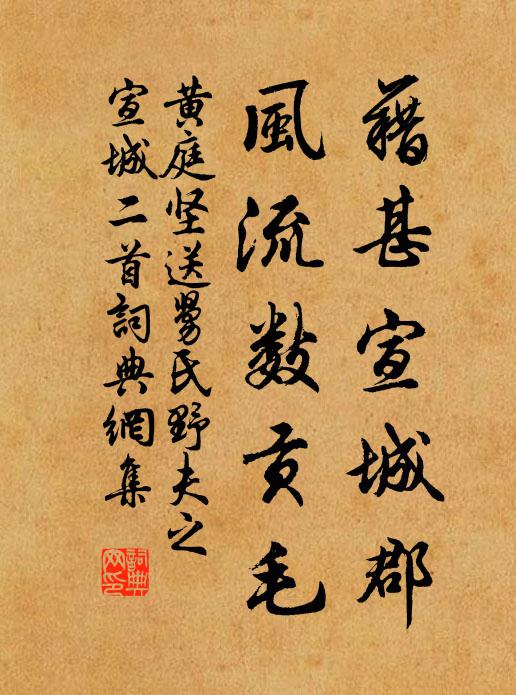 藉甚宣城郡
風流数貢毛
黄庭坚送舅氏野夫之
宣城二首詞典網集
詞典
网印